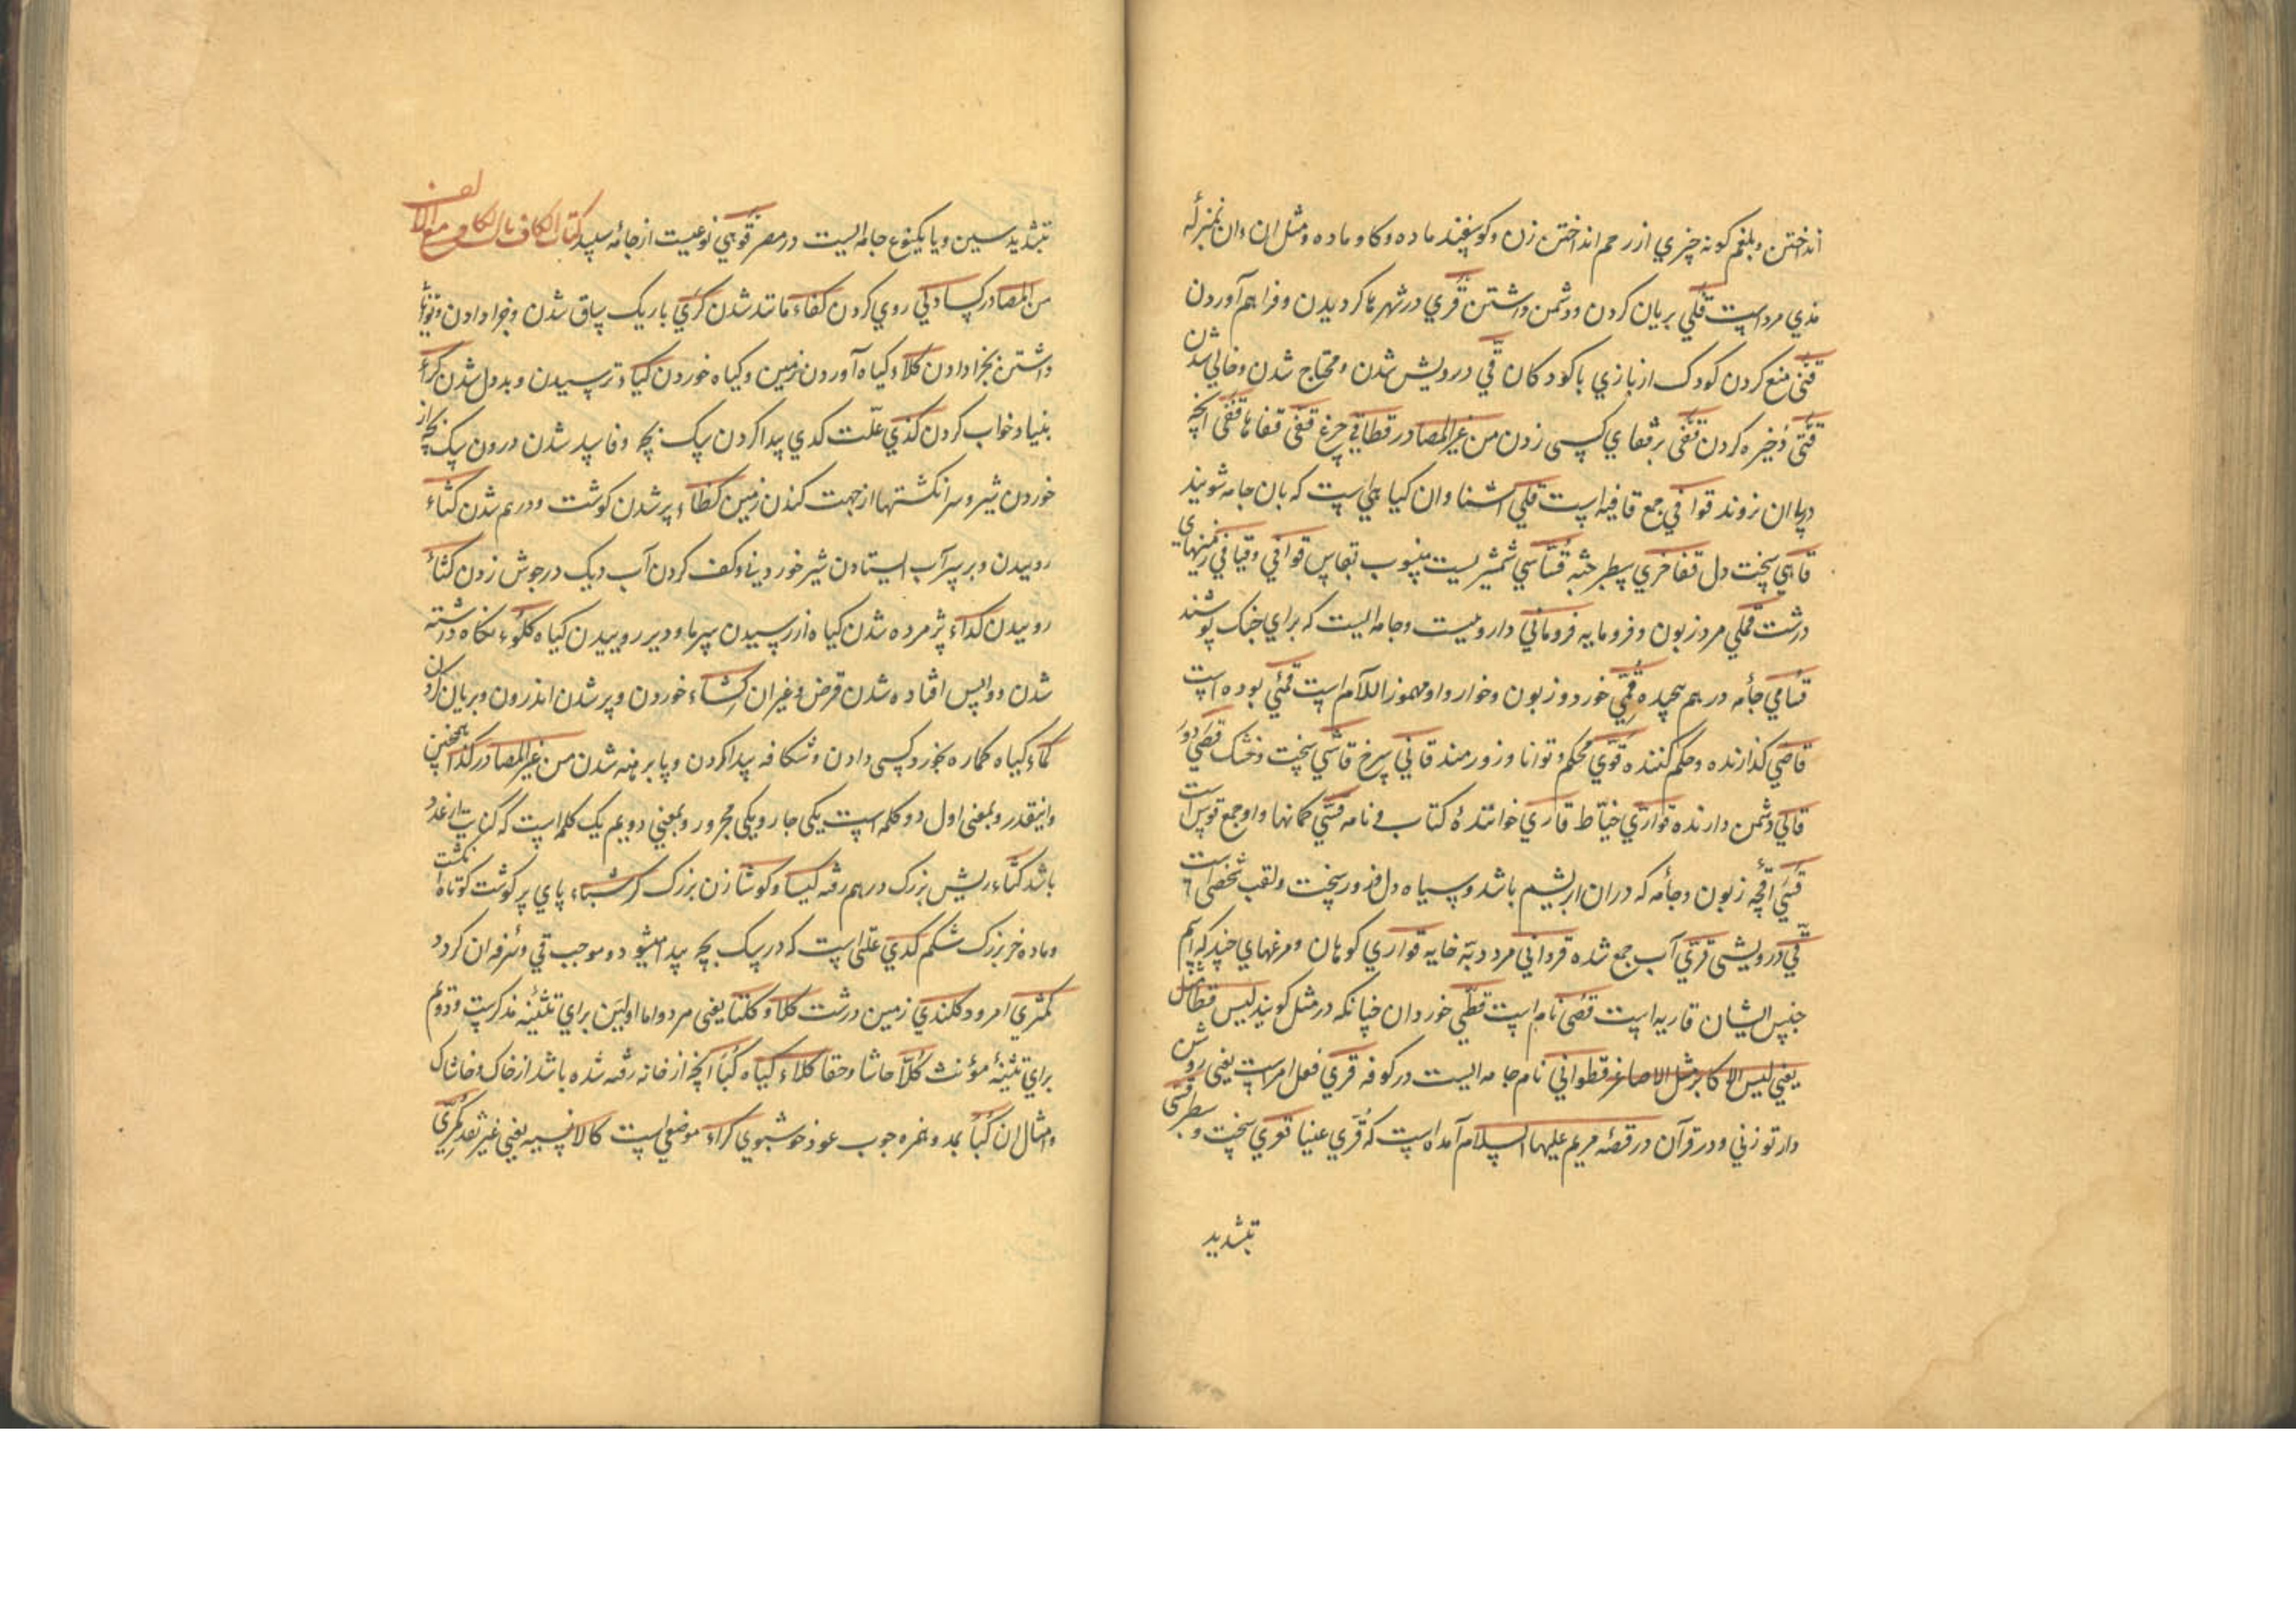 انداختن و بلغم کونه چیزي از رحم انداختن زن و کوسفند ماده و کاو ماده و مثل ان و ان بمنزله
مذي مرد است قلي بریان کردن و دشمن داشتن قري در شهرها کردیدن و فراهم آوردن
منع کردن کودک از بازي با کودکان قي درویش شدن و محتاج شدن و خالي شدن
ذخیره کردن قفی بر قفاي کسی زدن من غیر المصادر قطاقي چرغ قفی قفاها قفی انچه
در پا ان نروند قوافي جمع قافیه است قلي اشنا و ان کیاهي است که بان جامه شویند
قاهي سخت دل قفاخري سطبر جثه قساسي شمشیریست منسوب بقساس قواقي و قیاقي زمینهاي
درشت قملي مرد زبون و فرومایه فروماني داروییست و جامه ایست که براي جنک پوشند
قسامي جامه در هم پیچیده قمي خورد و زبون و خوار و او مهموز اللام است قمئي بوده است
قاضي کذارنده و حکم کننده قوي محکم و توانا و زورمند قاني سرخ قاسي سخت و خشک قصي دور
قالي دشمن دارنده قواري خیاط قاري خوانندۀ کتاب و نامه قسي کمانها و او جمع قوس است
قسي اقچه زبون و جامه که دران ابریشم باشد و سیاه دل و زور سخت و لقب شخصی است
قي درویشی قري آب جمع شده قرواني مرد دبه خایه قواري کوهان و مرغهاي چند که اسم
جنس ایشان قاریه است قصی نام است قطي خوردان چنانکه در مثل کویند لیس قطا مثل
یعني لیس الاکابر مثل الاصاغر قطواني نام جامه ایست در کوفه قري فعل امر است یعنی روشن
دار تو زني و در قرآن در قصۀ مریم علیها السلام آمده است که قري عینا قوي سخت و سطبر قسی
تشدید
تشدید سین و یا یکنوع جامه ایست در مصر قوهي نوعیست از جامۀ سپید کتاب الکاف باب الکاف مع الالف
من المصادر کسا دلي روي کردن کفاء مانند شدن کري باریک ساق شدن و جزا دادن و
داشتن بجزا دادن کلاء کیاه آوردن زمین و کیاه خوردن کیا و ترسیدن و بددل شدن کراء
بنیاد خواب کردن کدي علت کدي پیدا کردن سک بچه و فاسد شدن درون سک بچه از
خوردن شیر و سر انکشتها از جهت کندن زمین کظاء پر شدن کوشت و در هم شدن کثاء
روییدن و بر سر آب ایستادن شیر خوردني و کف کردن آب دیک در جوش زدن کثاء
روییدن کداء پژمرده شدن کیاه از رسیدن سرما و دیر روییدن کیاه کلوء نکاه داشته
شدن و واپس افتاده شدن قرض و غیر ان کشاء خوردن و پر شدن اندرون و بریان کردن
کماء کیاه کماره بخورد کسی دادن و شکافه پیدا کردن و پا برهنه شدن من غیر المصادر کذا همچنین
و اینقدر و بمعنی اول دو کلمه است یکي جار و یکي مجرور و بمعني دویم یک کلمه است که کنایت از عدد
باشد کثاء ریش بزرک در هم رفته کیسا و کوشا زن بزرک کرشباء پاي پر کوشت کوتاه انکشت
و ماده خر بزرک شکم کدي علتي است که در سک بچه پیدا میشود و موجب قي و سرفه ان کردد
کمثري امرود کلندي زمین درشت کلا و کلتا یعنی مرد و اما اولین براي تثنیۀ مذکرست و دویم
براي تثنیۀ مؤنث کلا حاشا و حقا کلاء کیاه کبا انچه از خانه رفته شده باشد از خاک و خاشاک
و امثال ان کباء بمد و غیره چوب عود خوشبوي کراء موضعي است کالا نسیه یعني غیر نقد کمري